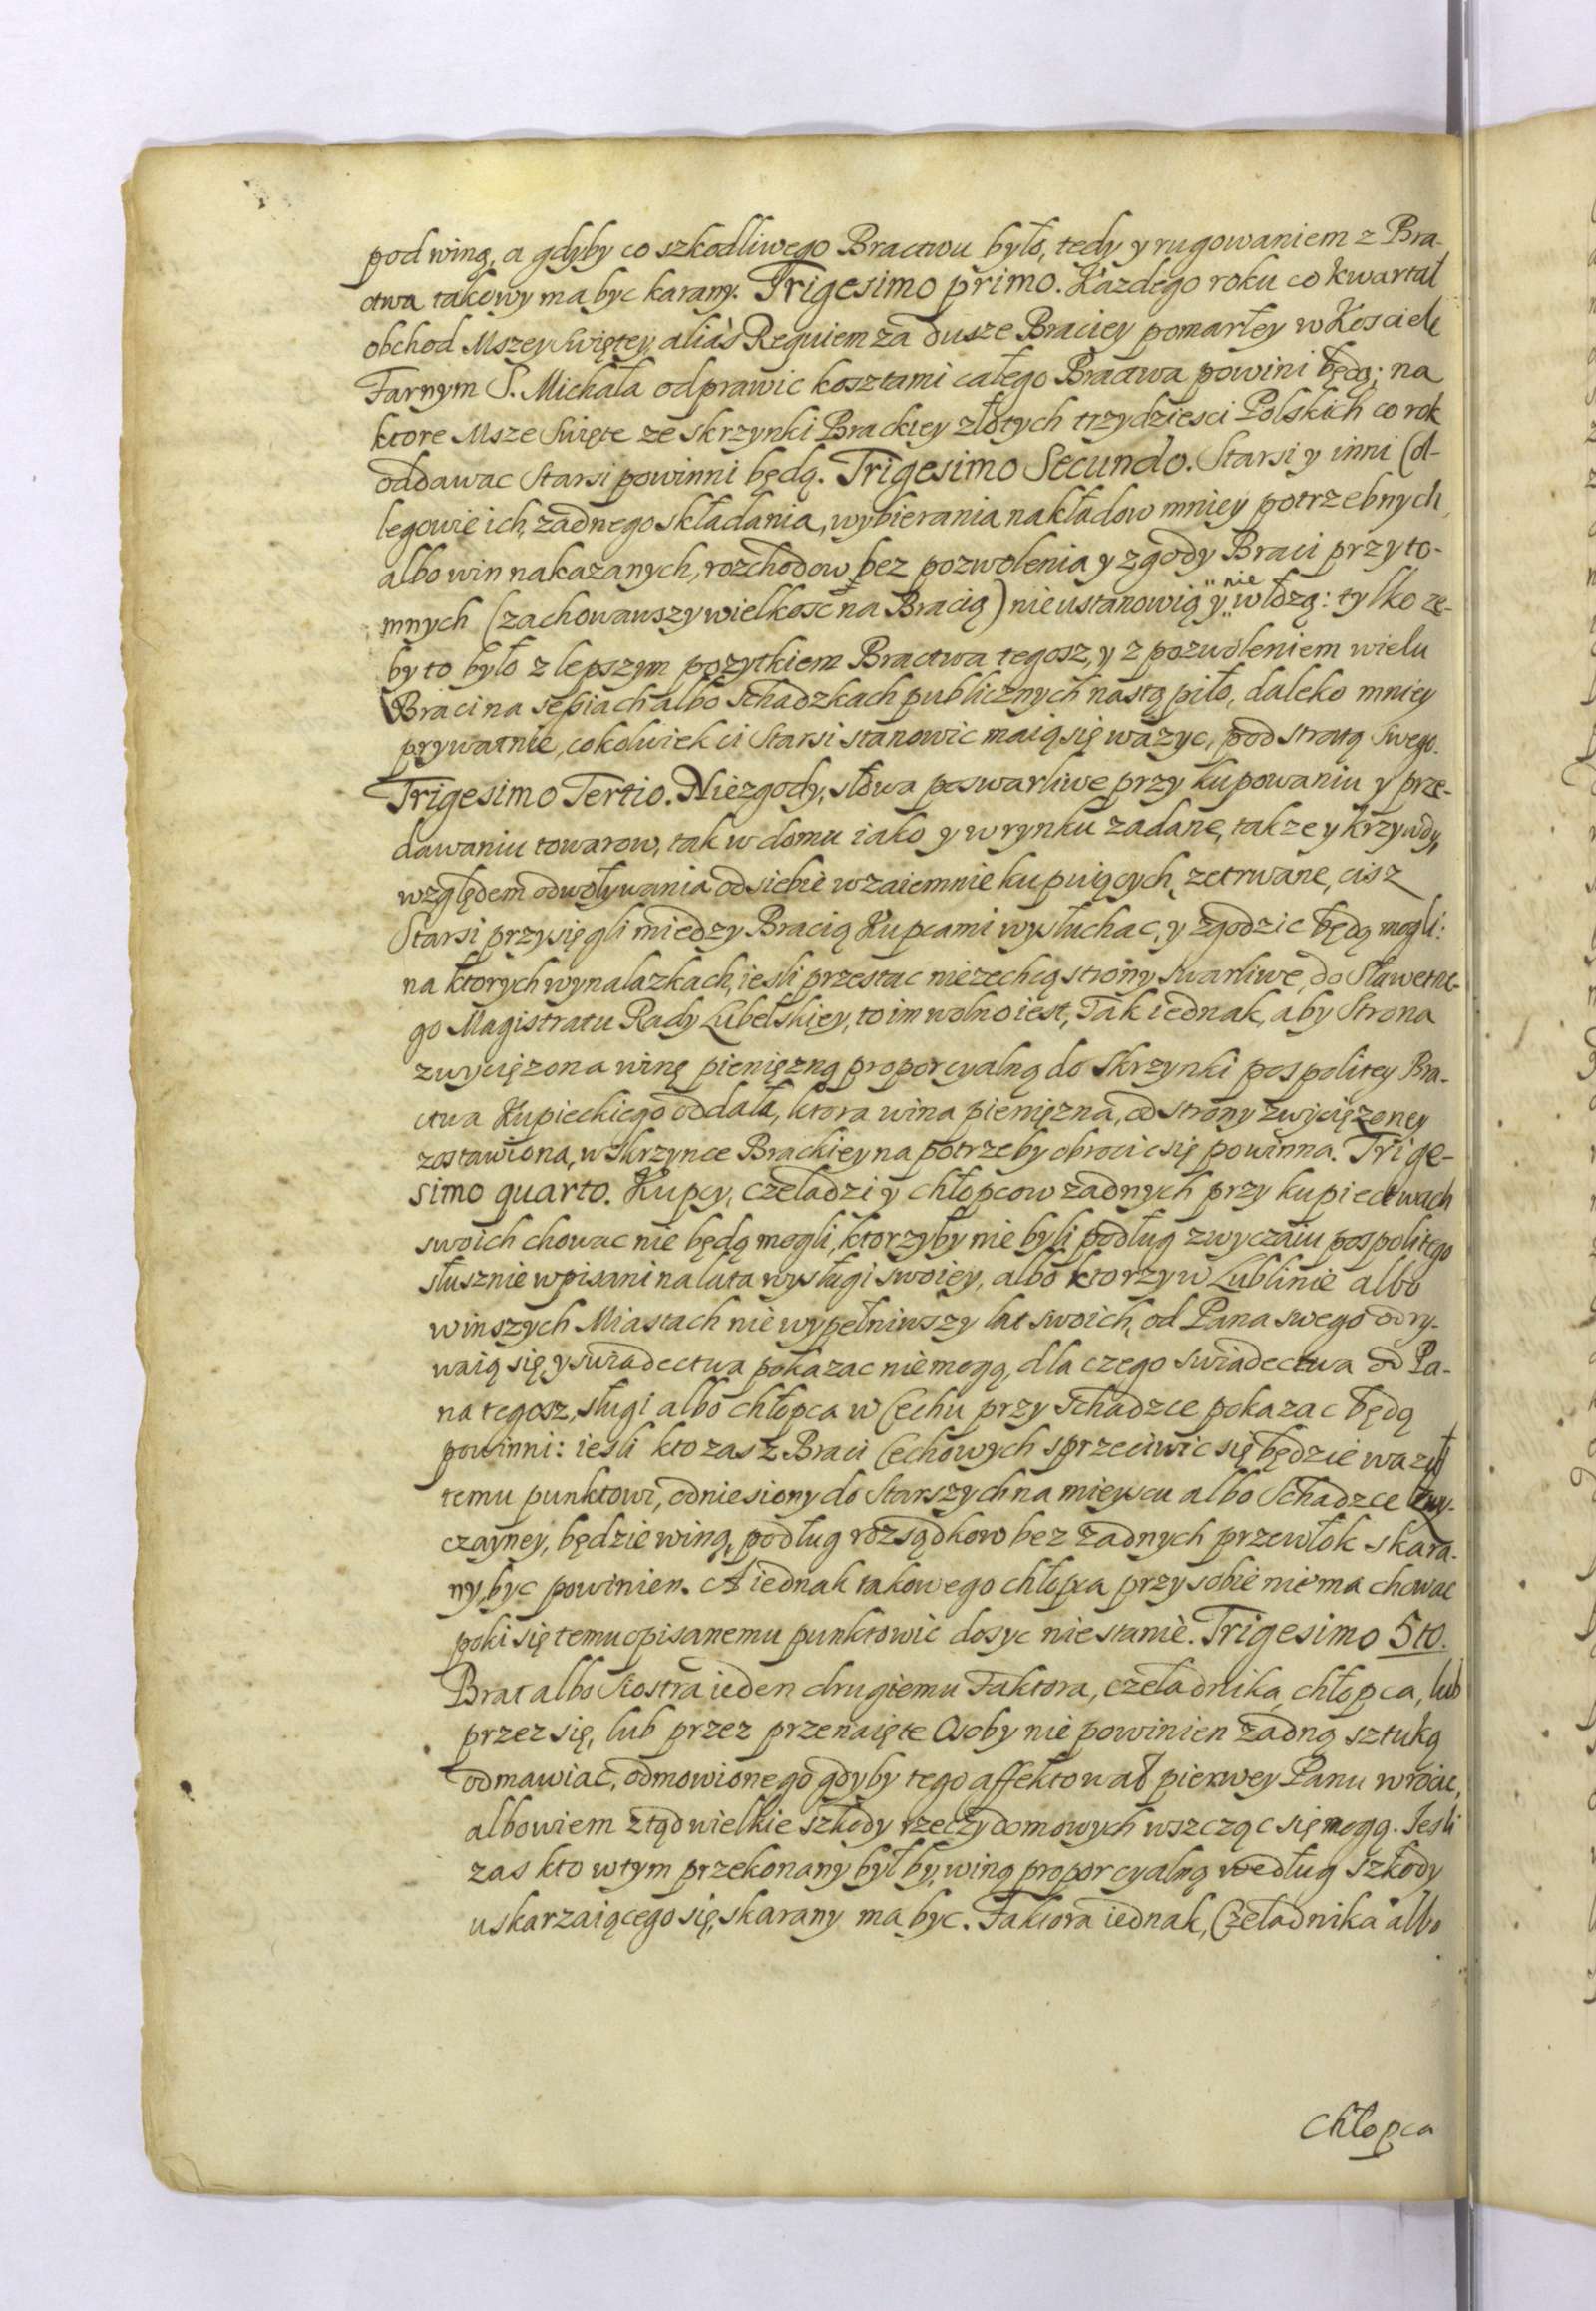 pod winą, a gdyby co szkodliwego Bractwu było, tedy y rugowaniem z Bra-
ctwa takowy ma byc karany. Trigesimo primo. Kazdego roku co kwartał
obchod Mszey Swiętey, aliàs Requiem za dusze Braciey pomarłey w Kosciele
Farnym S. Michała odprawic kosztami całego Bractwa powini będą; na
ktore Msze Swięte ze skrzynki Brackiey złotych trzydziesci Polskich co rok
oddawac Starsi powinni będą. Trigesimo Secundo. Starsi y inni Col-
legowie ich, zadnego składania, wybierania nakładow mniey potrzebnych,
albo win nakazanych, rozchodow bez pozwolenia y zgody Braci przyto-
mnych (zachowawszy wielkosc na Bracią) nie ustanowią y nie włozą: tylko ze-
by to było z lepszym pozytkiem Bractwa tegosz, y z pozwoleniem wielu
Braci na sessiach albo schadzkach publicznych nastąpiło, daleko mniey
prywatnie, cokolwiek ci Starsi stanowic maią się wazyc, pod stratą swego.
Trigesimo Tertio. Niezgody, słowa poswarliwe przy kupowaniu y prze-
dawaniu towarow, tak w domu iako y w rynku zadane, takze y krzywdy,
względem odwoływania od siebie wzaiemnie kupuiących, zetrwane, cisz
Starsi przysięgli między Bracią Kupcami wysłuchac, y zgodzic będą mogli:
na ktorych wynalazkach, iesli przestac niezechcą strony swarliwe, do Sławetne-
go Magistratu Rady Lubelskiey, to im wolno iest, Tak iednak, aby Strona
zwyciężona winę pieniężną proporcyalną do Skrzynki pospolitey Bra-
ctwa Kupieckiego oddała, ktora wina pieniężna, od strony zwyciężoney
zostawiona, w skrzynce Brackiey na potrzeby obrocic się powinna. Trige-
simo quarto. Kupcy, czeladzi y chłopcow zadnych przy kupiectwach
swoich chowac nie będą mogli, ktorzyby nie byli podług zwyczaiu pospolitego
słusznie wpisani na lata wysługi swoiey, albo ktorzy w Lublinie albo
winszych Miastach nie wypełniwszy lat swoich, od Pana swego odry-
waią się, y swiadectwa pokazac niemogą, dla czego swiadectwa od Pa-
na tegosz, sługi albo chłopca w Cechu przy Schadzce pokazac będą
powinni: iesli kto zas z Braci Cechowych sprzeciwic się będzie wazył
temu punktowi, odniesiony do Starszych na mieyscu albo Schadzce zwy-
czayney, będzie winą, podług rozsądkow bez zadnych przewłok skara-
ny, byc powinien. A iednak takowego chłopca przy sobie niema chowac
poki się temu opisanemu punktowi dosyc niestanie. Trigesimo 5to.
Brat albo Siostra ieden drugiemu Faktora, czeladnika, chłopca, lub
przez się, lub przez przenaięte Osoby nie powinien zadną sztuką
odmawiac, odmowionego gdyby tego affektował pierwey Panu wrocic,
albowiem ztąd wielkie szkody rzeczy domowych wszcząc się mogą. Iesli
zas kto w tym przekonany byłby, winą proporcyalną według szkody
uskarzaiącego się, skarany ma byc. Faktora iednak, Czeladnika albo
Chłopca